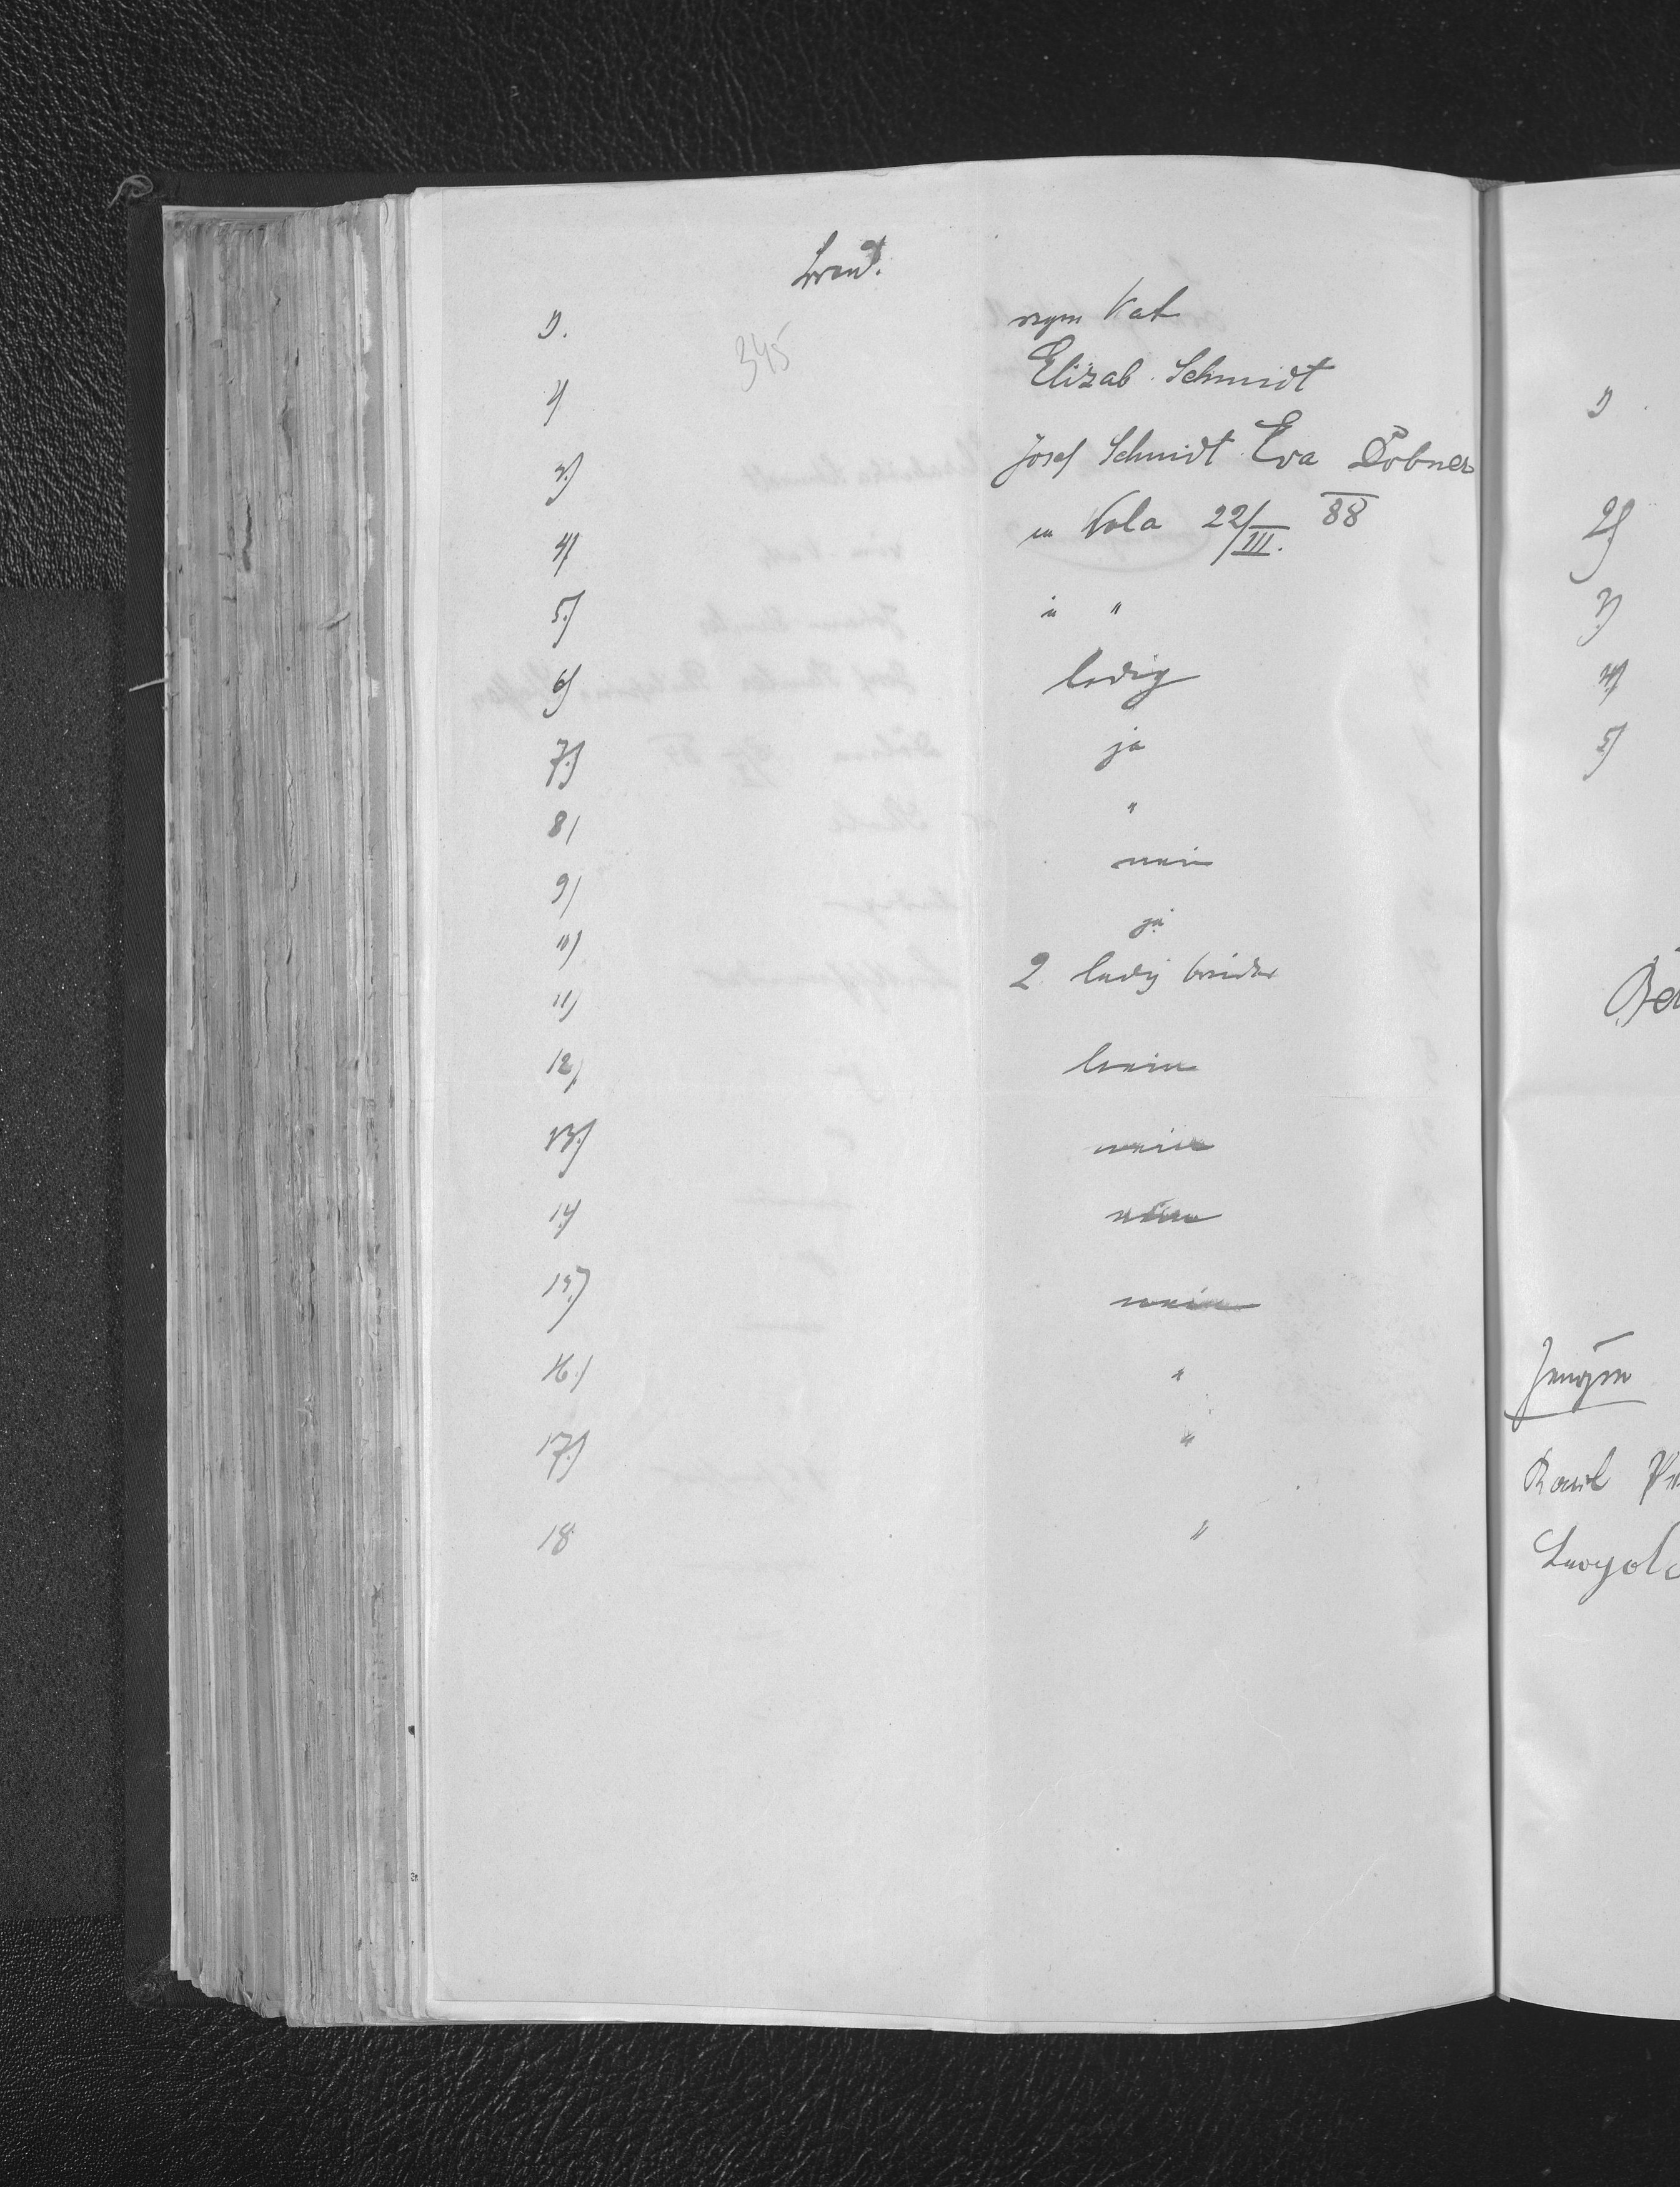 Braut.
1). röm Kat
345
2) Elisab. Schmidt
3.) Josef Schmidt Eva Dobner
4) in Wola 22/III. 88
5.) in "
6) ledig
7.) ja
8) "
9) nein
10) ja
11) 2 ledig brüder
12) kein
13.) nein
14) nein
15.) nein
16.) "
17.) "
18 "
1)
2)
3)
4)
5)
Zeugen
Karl
Leopold